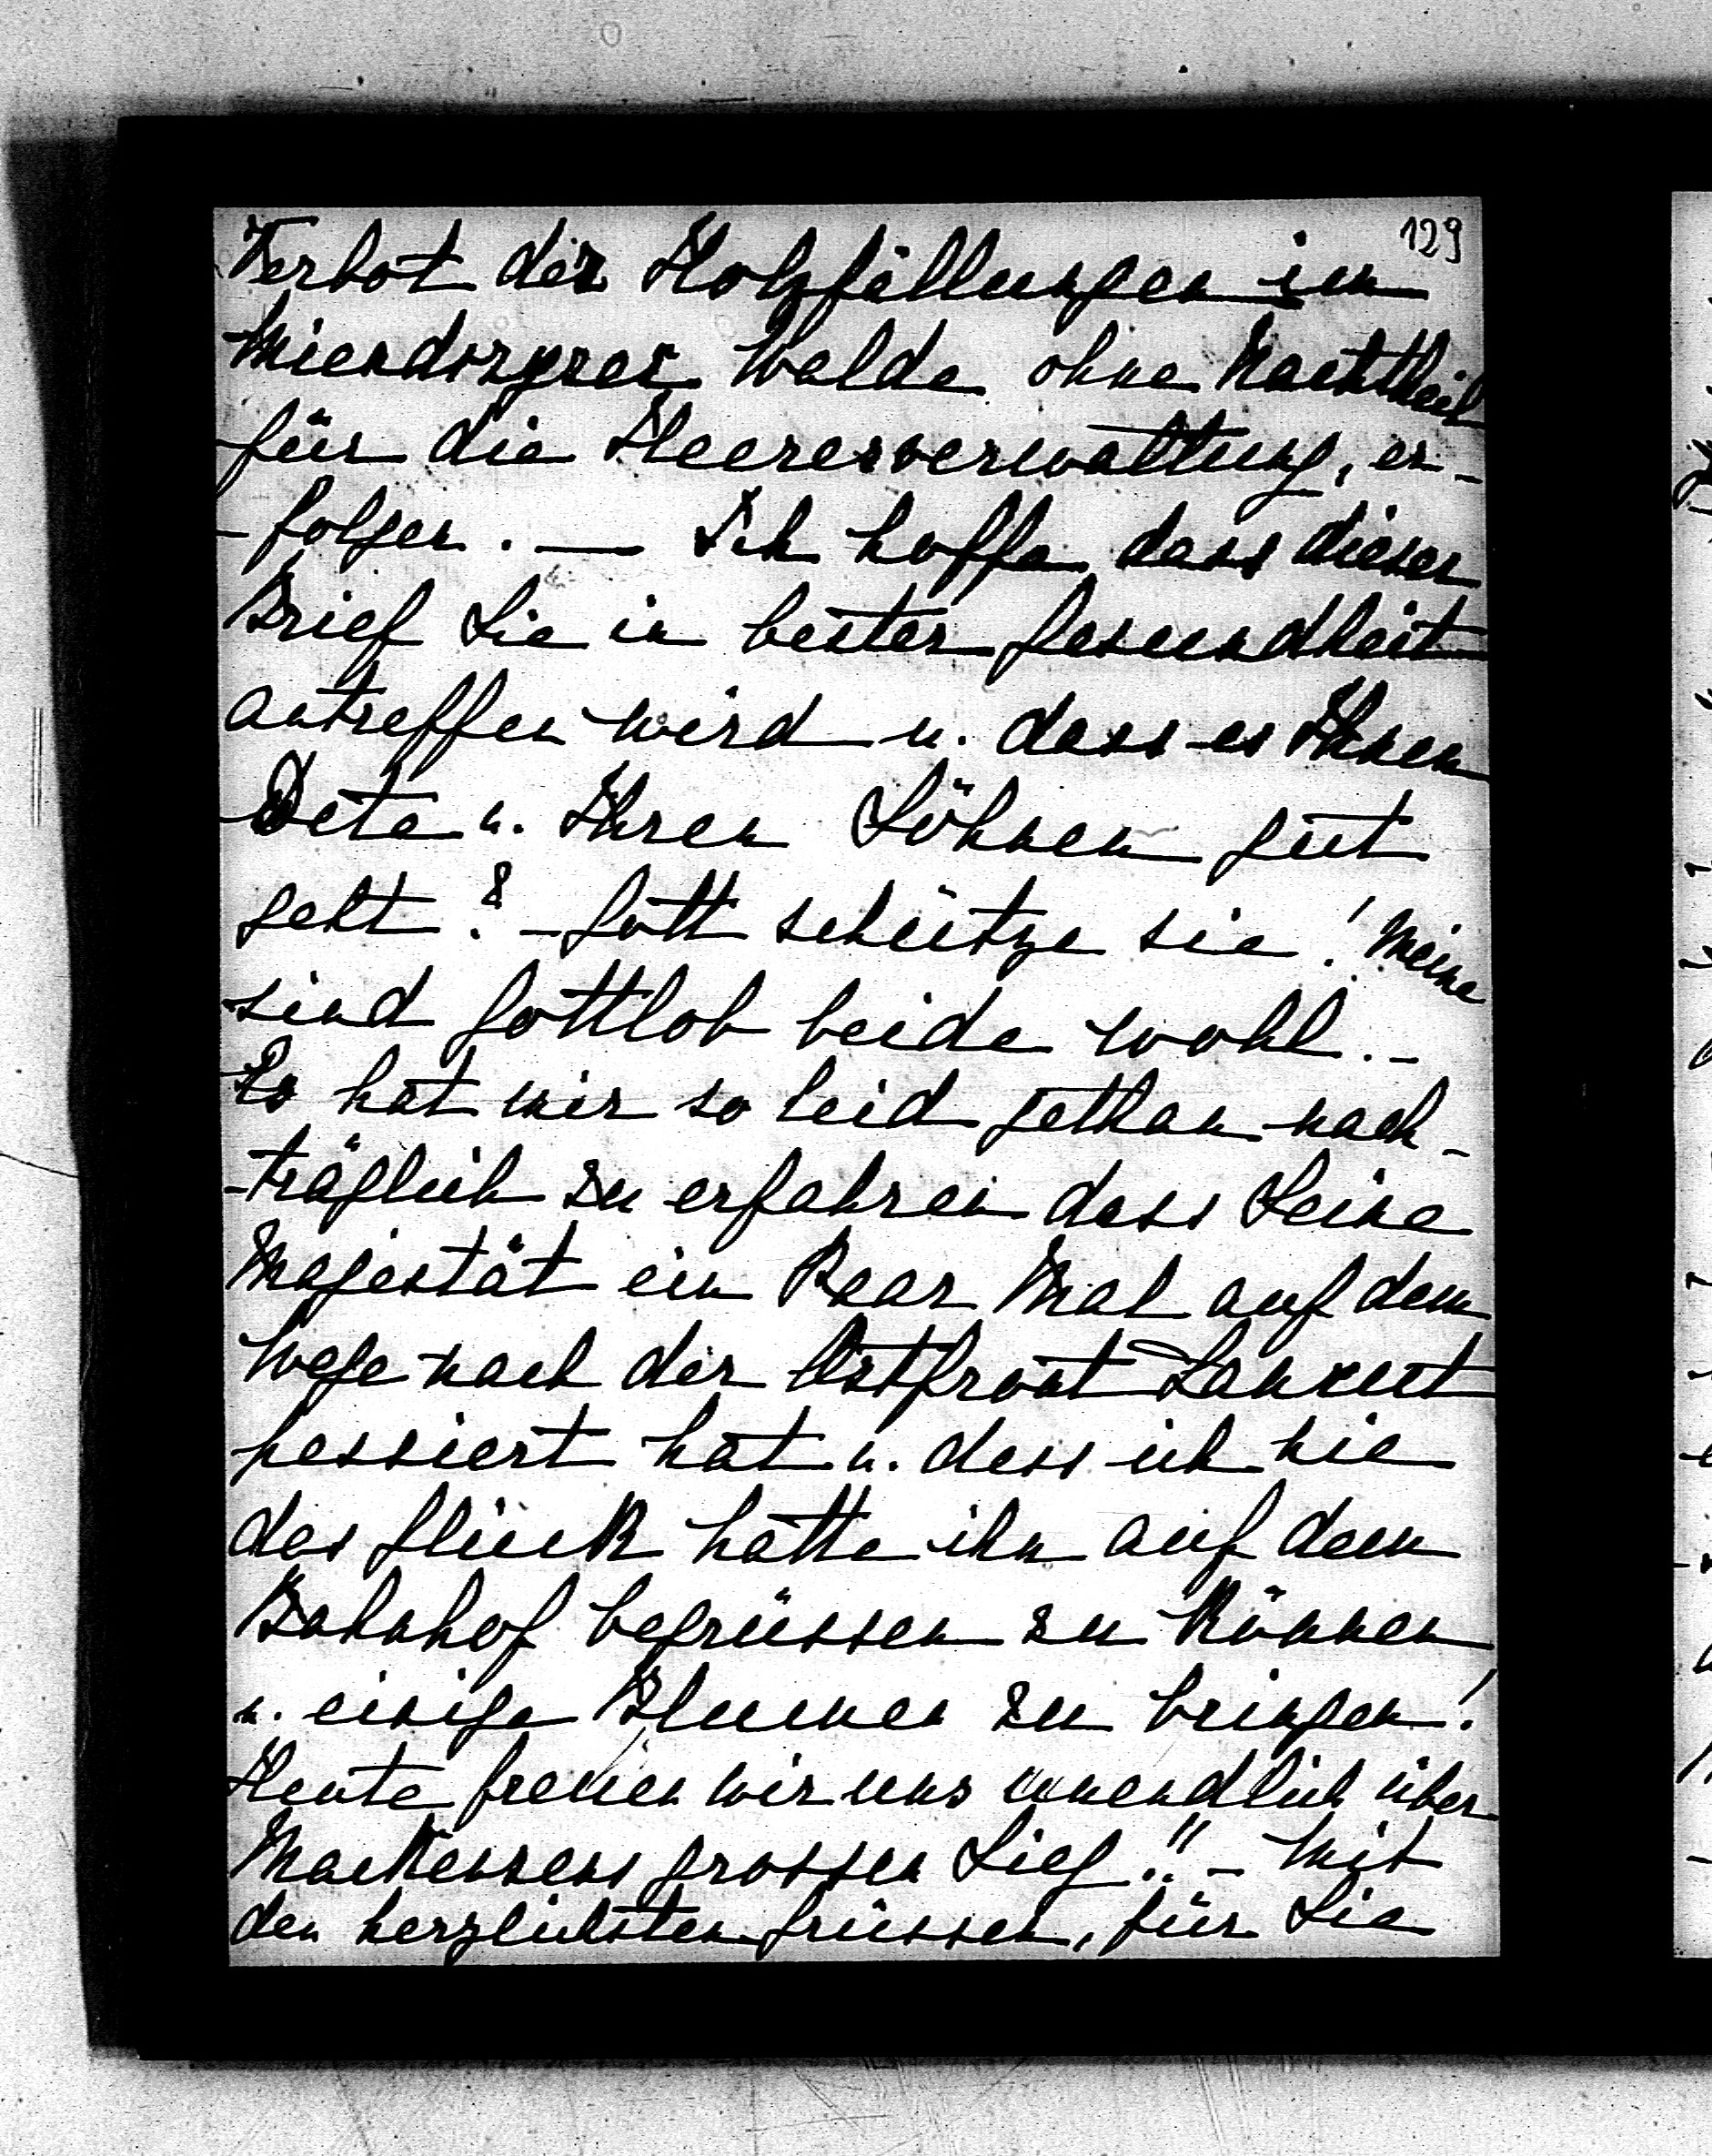 129
Verbot der Holzfällungen im
Walde ohne Nachtheil
für die Heeresverwaltung, er-
-folgen. — Ich hoffe dass dieser
Brief Sie in bester Gesundheit
antreffen wird u. dass es Ihnen
Deta u. Ihren Söhnen gut
geht? - Gott schütze sie! Meine
sind Gottlob beide wohl. -
Es hat mir so leid gethan nach-
-träglich zu erfahren dass Seine
Majestät ein Paar Mal auf dem
Wege nach der Ostfront Lancut
passiert hat u. dass ich nie
das Glück hatte ihn auf dem
Bahnhof begrüssen zu können
u. einige Blumen zu bringen!
Heute freuen wir uns unendlich über
Mackensens grossen Sieg!! - Mit
den herzlichsten Grüssen, für Sie